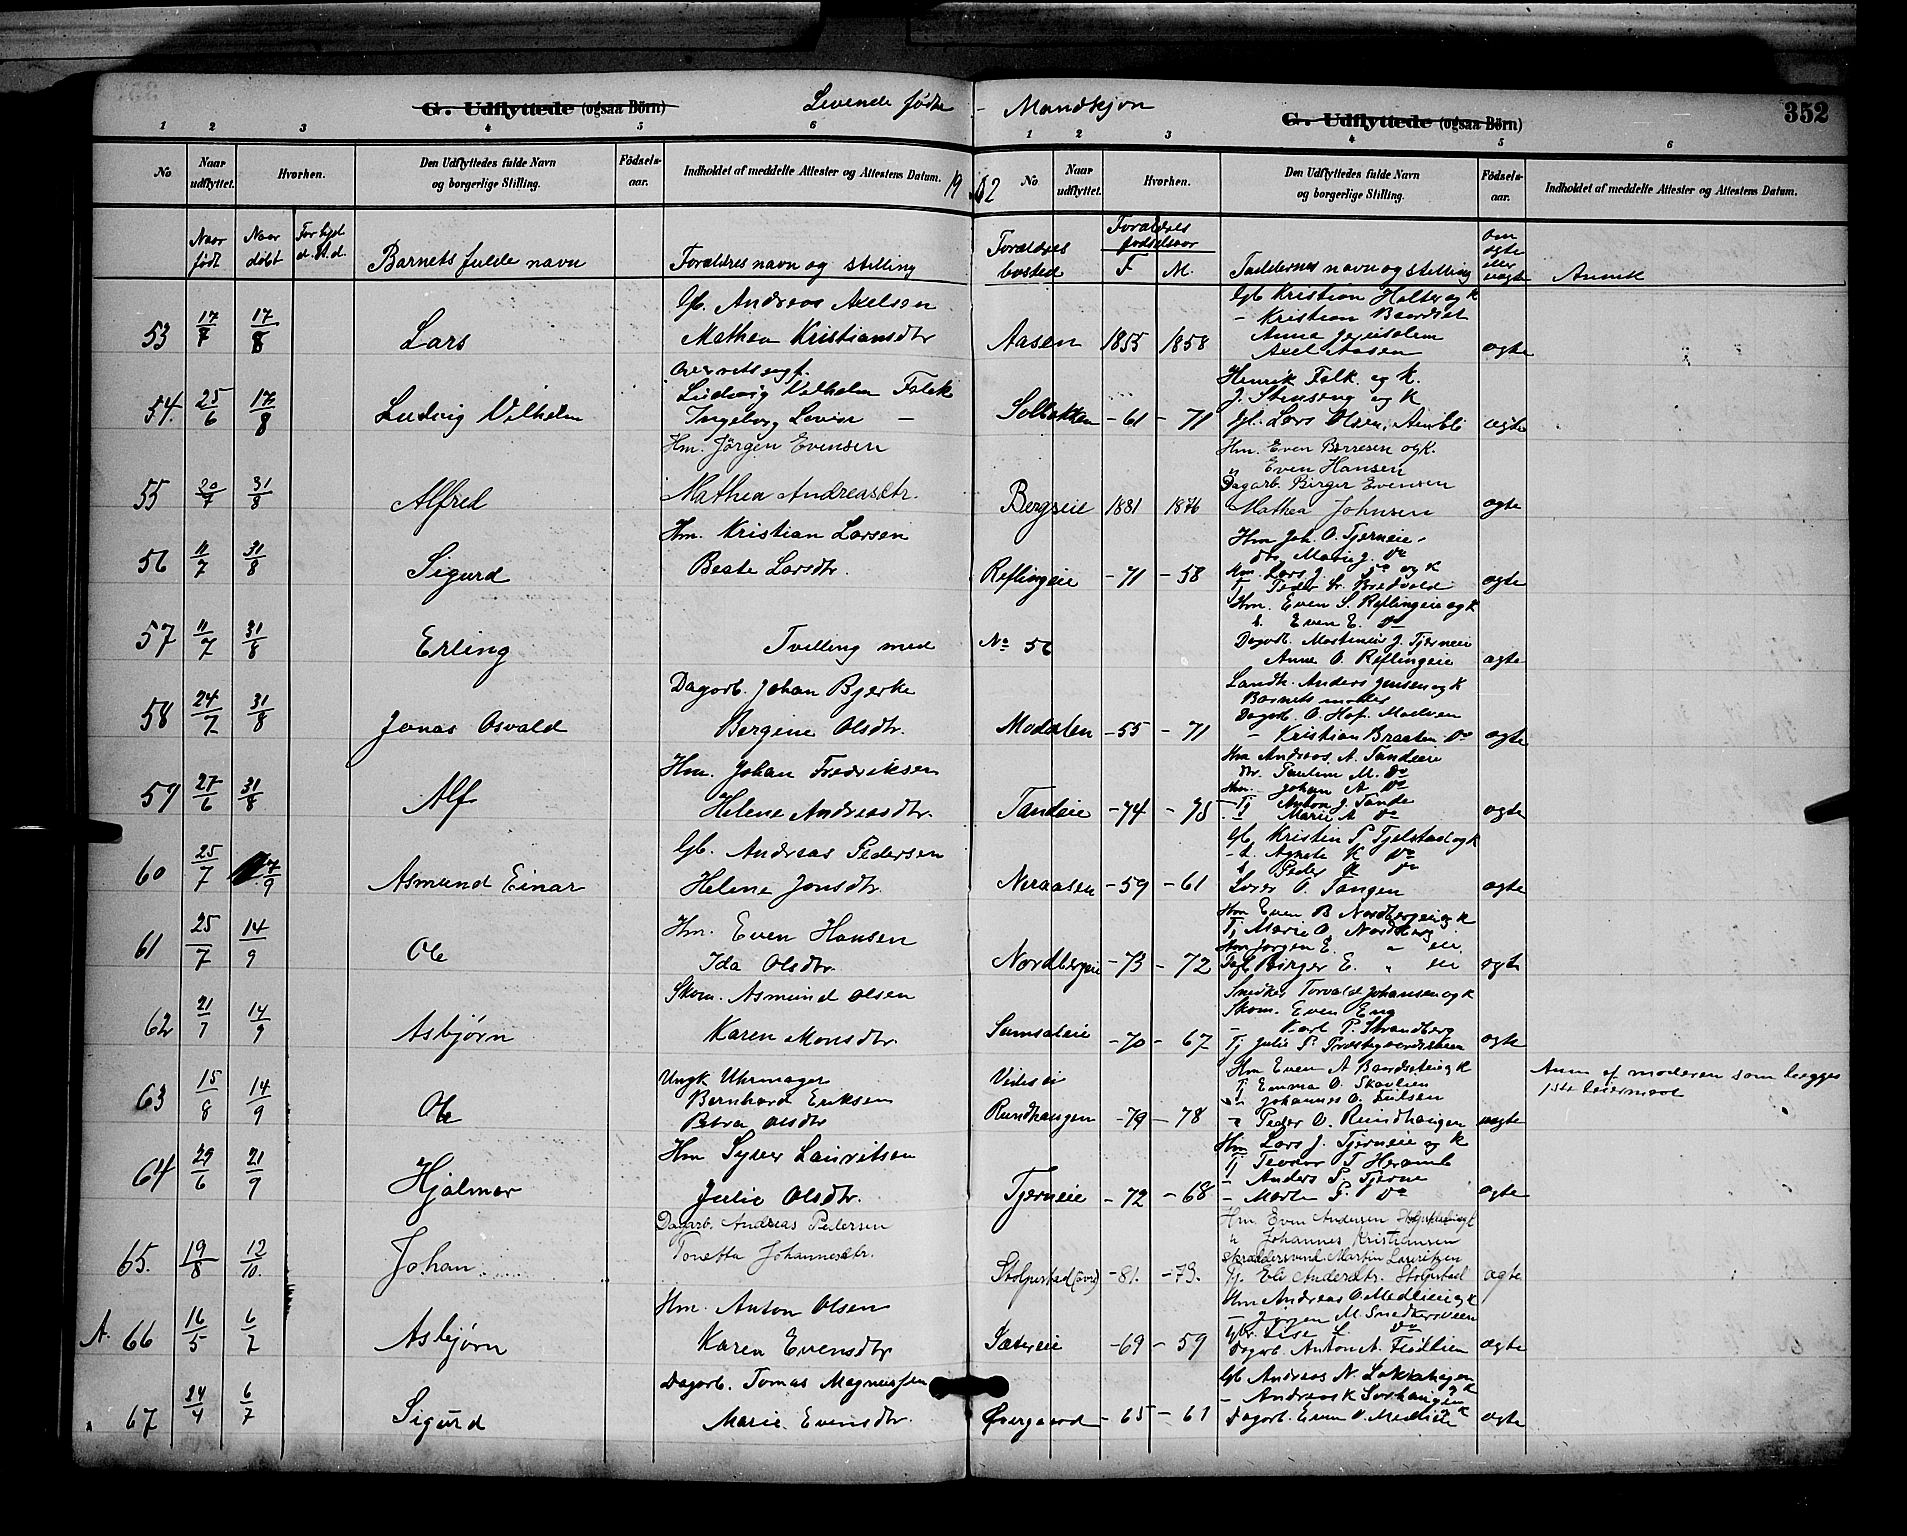 G. Udflyttede (ogsaa Börn) Levende fødte - Mandkjøn G. Udflyttede (ogsaa Börn) 352
1 2 3 4 5 6 1 2 3 4 5 6
No Naar udflyttet. Hvorhen. Den Udflyttedes fulde Navn og borgerlige Stilling. Födsels-aar. Indholdet af meddelte Attester og Attestens Datum. 19 02 No Naar udflyttet. Hvorhen. Den Udflyttedes fulde Navn og borgerlige Stilling. Födsels-aar. Indholdet af meddelte Attester og Attestens Datum.
Naar født Naar døbt Barnets fulde navn Forældres navn og stilling Forældres bosted Forældres fødselsaar F M. Faddernes navn og stilling om ægte eller uægte Anmk
53 17/7 17/8 Lars Gb. Andreas Axelsen
Mathea Kristiansdtr Aasen 1855 1858 Gb Kristian Holter og k
- Kristian Baardset
Anna Jerusalem
Axel Aasen ægte
54. 25/6 17/8 Ludvig Vilhelm
Ludvig Vilhelm Falck
Ingeborg Lovise - Solbakken -61 -71 Henrik Falk og K.
J. Stenseng og K
Gb. Lars Olsen, Ambli ægte
55 20/7 31/8 Alfred Hm. Jörgen Evensen
Mathea Andreasdtr. Bergseie 1881 1876 Hm. Even Børresen og k.
" Even Hansen
Dagarb. Birger Evensen
Mathea Johnsen ægte
56 11/7 31/8 Sigurd Hm. Kristian Larsen
Beate Larsdtr. Reflingeie -71 -58 Hm Joh. O. Tjerneie
dtr. Marie J. Do
Hm. Lars J. Do og k
ægte
57 11/7 31/8 Erling Tvilling med No 56 Hm. Even S. Reflingeie og k
s. Even E. Do
Dagarb. Martinius J. Tjerneie
Anne O. Reflingeie ægte
58 24/7 31/8 Jonas Osvald Dagarb. Johan Bjerke
Bergine Olsdtr. Modalen -55 -71 Landh. Anders Jensen og k
Barnets moder
Dagarb. O. Hof. Moelven
- Kristian Braaten Do ægte
59 27/6 31/8 Alf Hm. Johan Fredriksen
Helene Andreasdtr. Tandeie -74 -75 Hm Andreas A. Tandeie
dtr. Pauline M. Do
Hm. Johan A Do
- Tj Anton J. Tande
- Marie A Do ægte
60 25/7 7/9 Asmund Einar Gb. Andreas Pedersen
Helene Jonsdtr. Neraasen -59 -61 Gb. Kristin P Tjelstad og k
- d. Agnete K Do
s Peder K Do
Lorer O. Tangen ægte
61 25/7 14/9 Ole Hm. Even Hansen
Ida Olsdtr. Nordbergeie -73 -72 Hm Even B Nordbergeie og k
Tj Marie O. Nordberg
Hm Jørgen E. " eie
Birger E. " eie ægte
62 21/7 14/9 Asbjørn Skom. Asmund Olsen
Karen Monsdtr. -70 -67 Snedker Torvald Johansen og k
Skom. Even Eng
- Karl P. Strandberg
Tj Julie P. ægte
63 15/8 14/9 Ole Ungk Uhrmager
Bernhard Eriksen
Petra Olsdtr
Rundhaugen -79 -78 Hm Even A Baardseteie og k
Tj Emma O. Skaulien
Johannes O.
" Peder O. Rundhaugen uægte Anm af moderen som begges
1ste leiermaal
64 29/6 21/9 Hjalmar Hm Syver Lauritsen
Julie Olsdtr. Tjerneie -72 -68 Hm Lars J. Tjerneie og k
Tj Teodor T Heramb
- Anders P. Tjerne
- Marte P. Do ægte
65. 19/8 12/10. Johan Dagarb. Andreas Pedersen
Tonetta Johannesdtr. Stolpestad (øvre) -81. -73. Hm. Even Andersen
" Johannes Kristiansen
Skræddersvend Martin Lauritzen
Tj. Eli Andersdtr. Stolpestad ægte
A. 66 16/5 6/7 Asbjørn Hm. Anton Olsen
Karen Evensdtr Sætereie -69 -59 Hm Andreas O. Medlieie og k
- Jørgen M. Snedkersveen
Gbr. Lise L Do
Dagarb Anton A. Flödlien ægte
" 67 24/4 6/7 Sigurd Dagarb. Tomas Magnussen
Marie Evensdtr. Øvergaard -65 -61 Gb Andreas N. Løkkehagen og k
- Andreas K Sorhaugen
Dagarb. Even O. Medlieie ægte